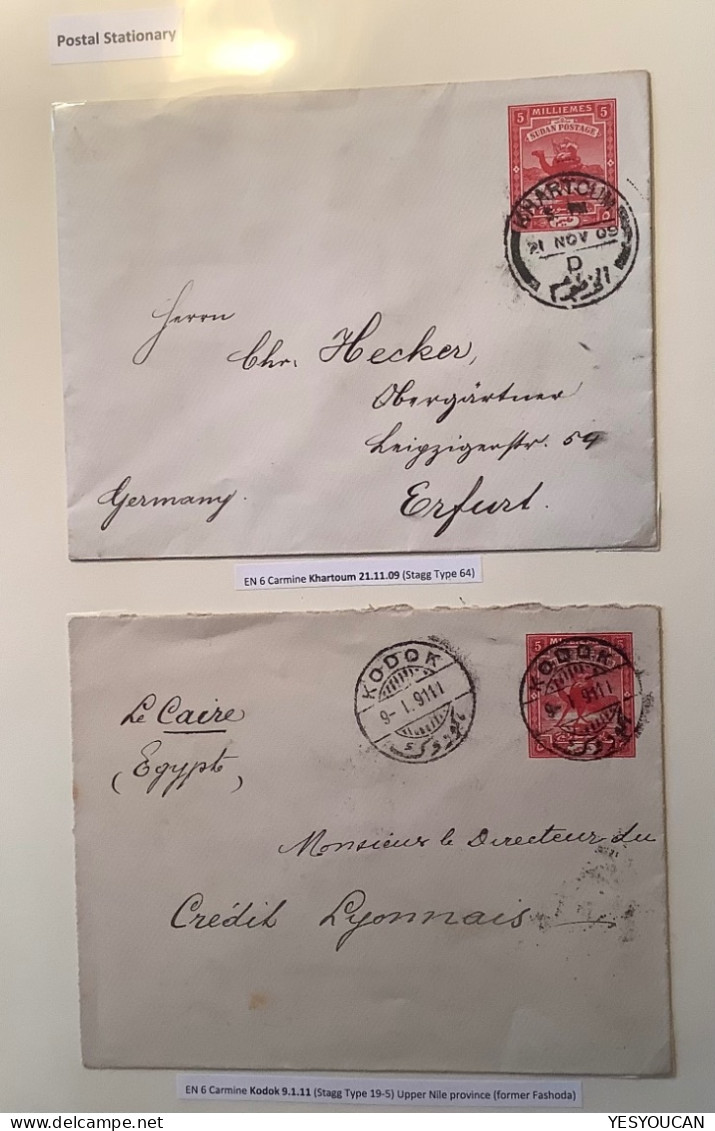 Postal Stationary
5 MILLIEMES 5
SUDAN POSTAGE
KHARTOUM
21 NOV 09
D
الخرطوم
Herrn
Chr. Hecker,
Obergärtner
Leipzigerstr. 59
Germany.
Erfurt.
EN 6 Carmine Khartoum 21.11.09 (Stagg Type 64)
5 MILLIEMES 5
KODOK
9-I.9111
كودوك
KODOK
9- 9111
كودوك
Le Caire
(Egypte)
Monsieur le Directeur du
Crédit Lyonnais
EN 6 Carmine Kodok 9.1.11 (Stagg Type 19-5) Upper Nile province (former Fashoda)
YESYOUCAN